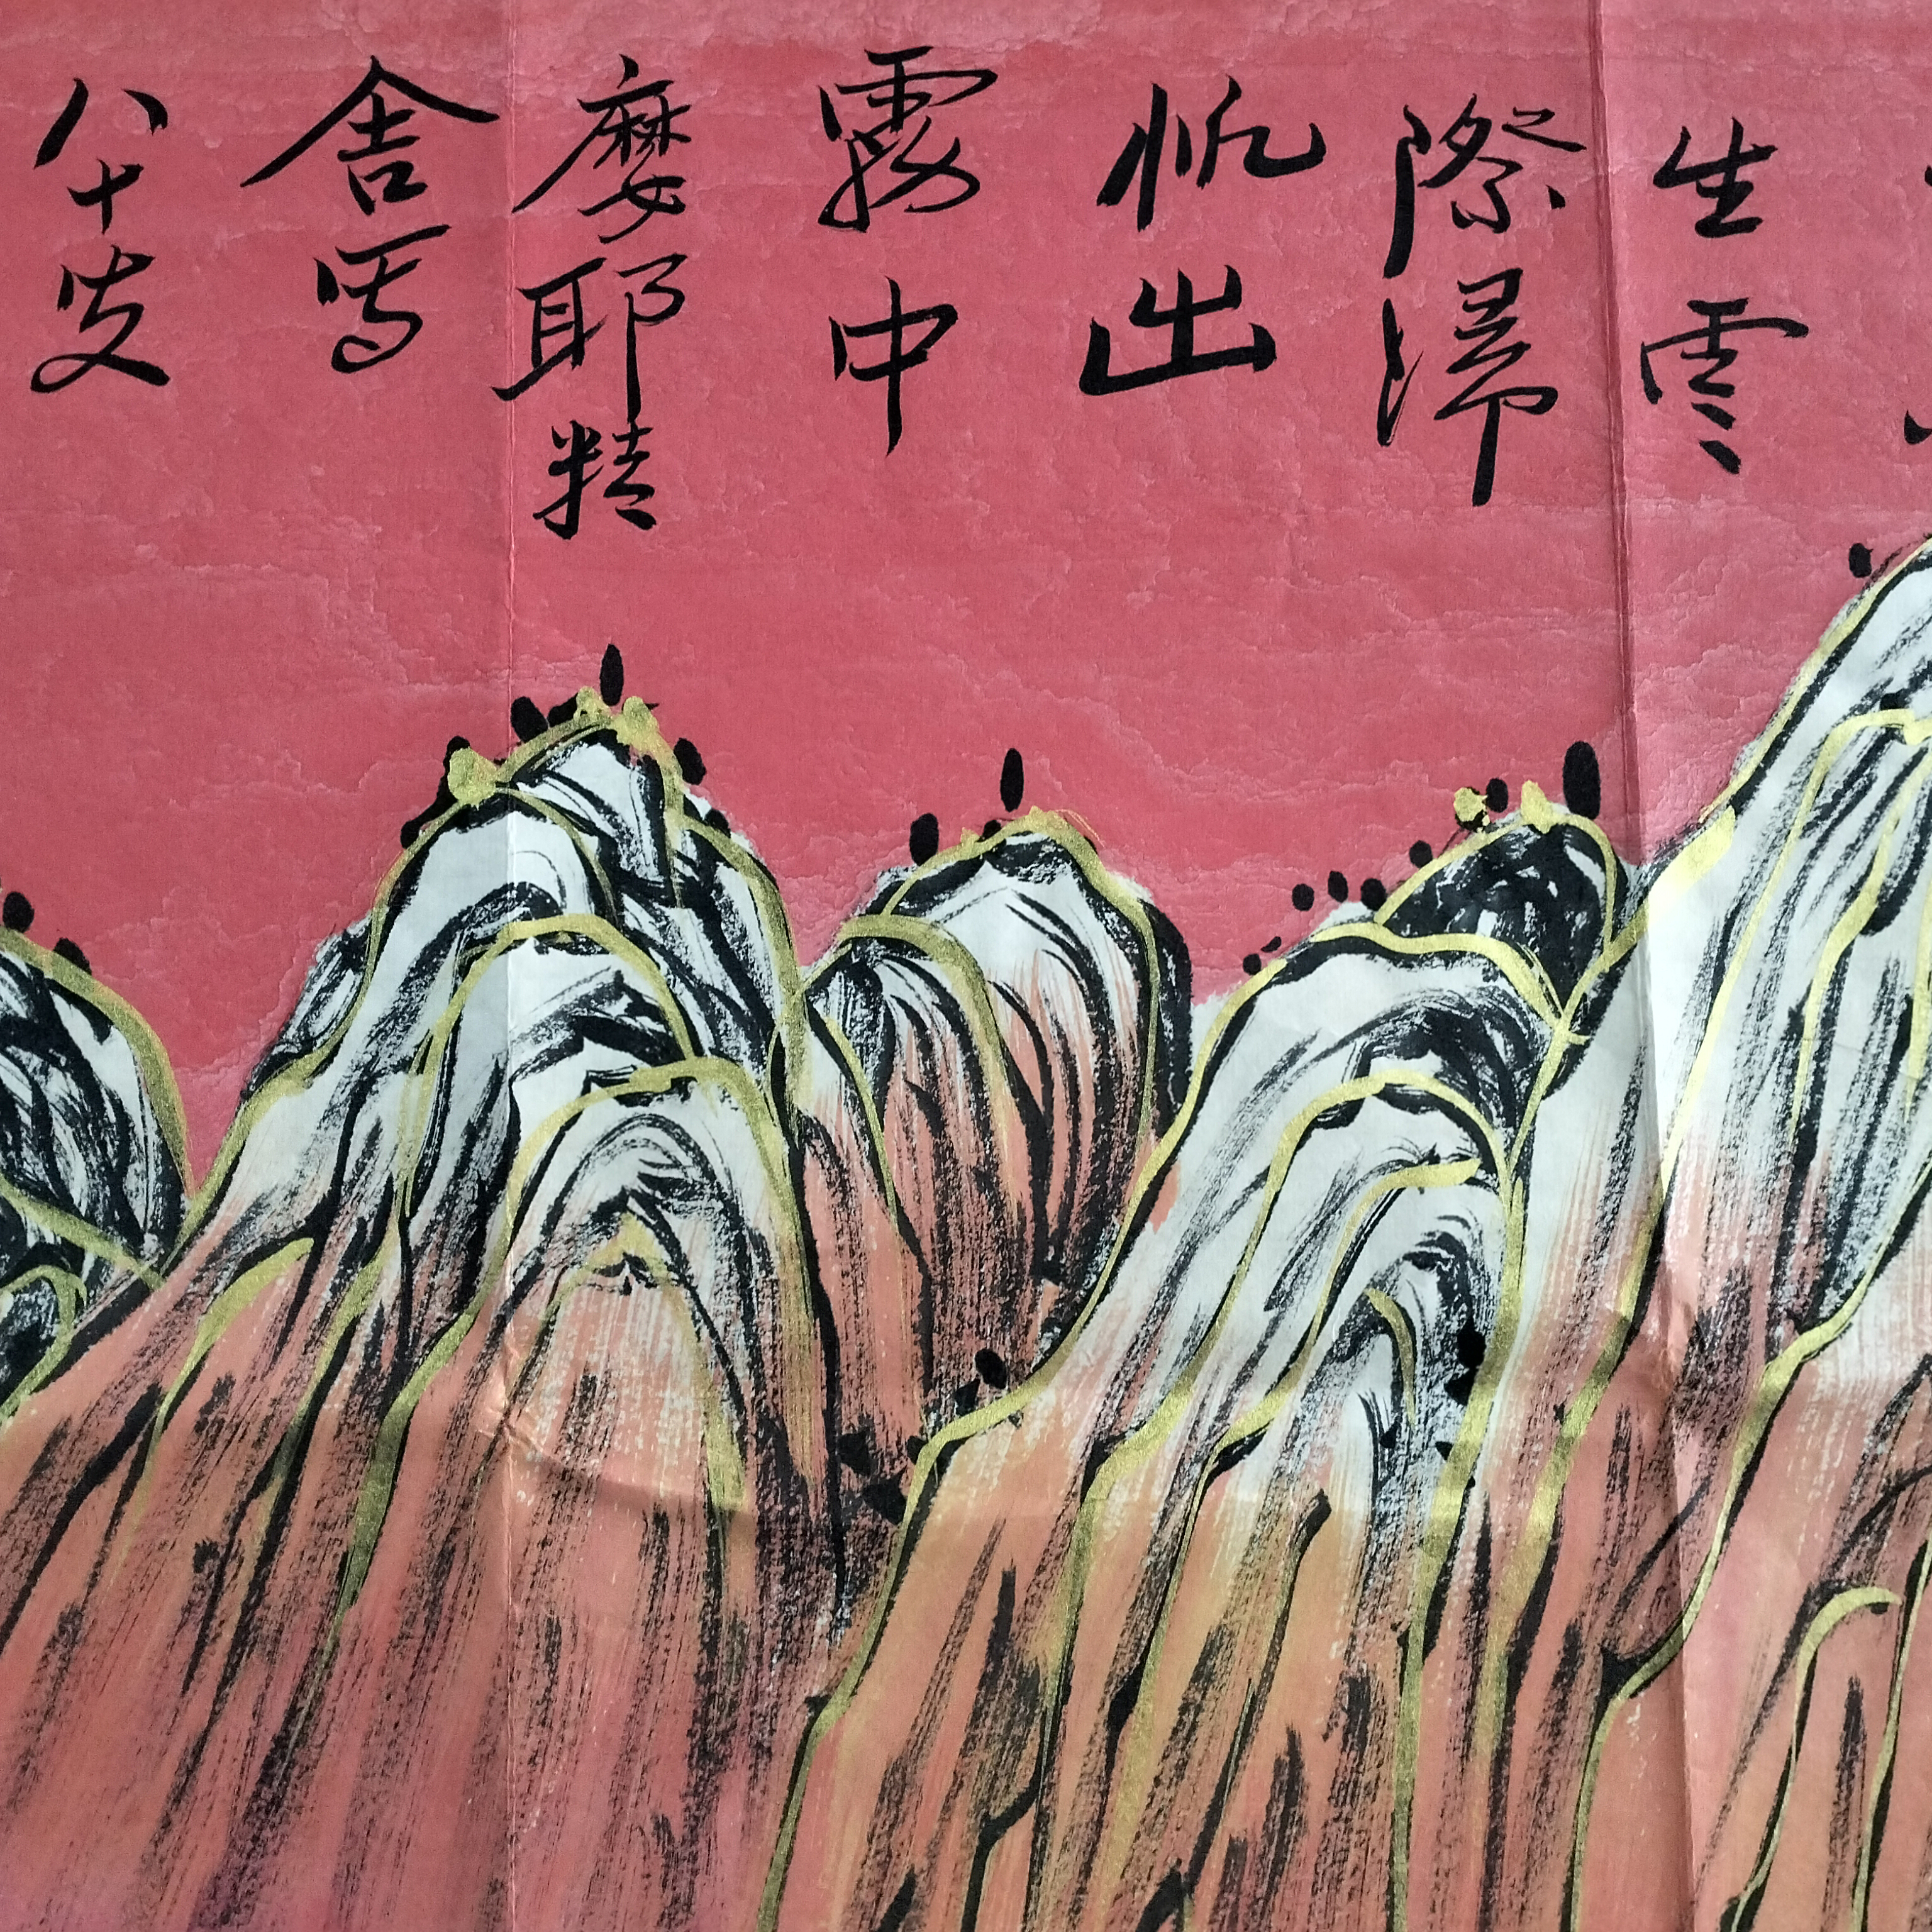 生雲
際歸
帆出
霧中
摩耶精
舍写
八十叟